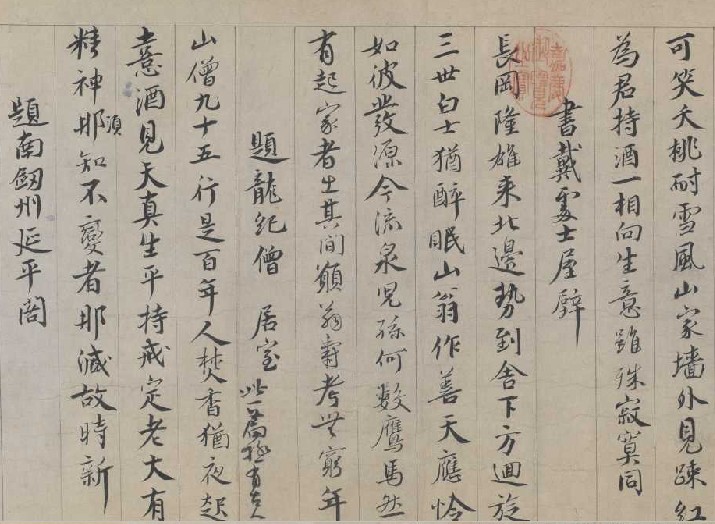 可笑夭桃耐雪風山家墻外見踈紅
為君持酒一相向生意雖殊寂寞同
書戴處士屋壁
長岡隆雄來北邊勢到舍下方迴旋
三世白士猶醉眠山翁作善天應憐
如彼發源今流泉兒孫何數鷹馬然
有起家者出其間願翁壽考無窮年
題龍紀僧居室
此一篇極有
山僧九十五行是百年人焚香猶夜起
憙酒見天真生平持戒定老大有
精神須
耶知不變者耶減故時新
題南劔州延平閣